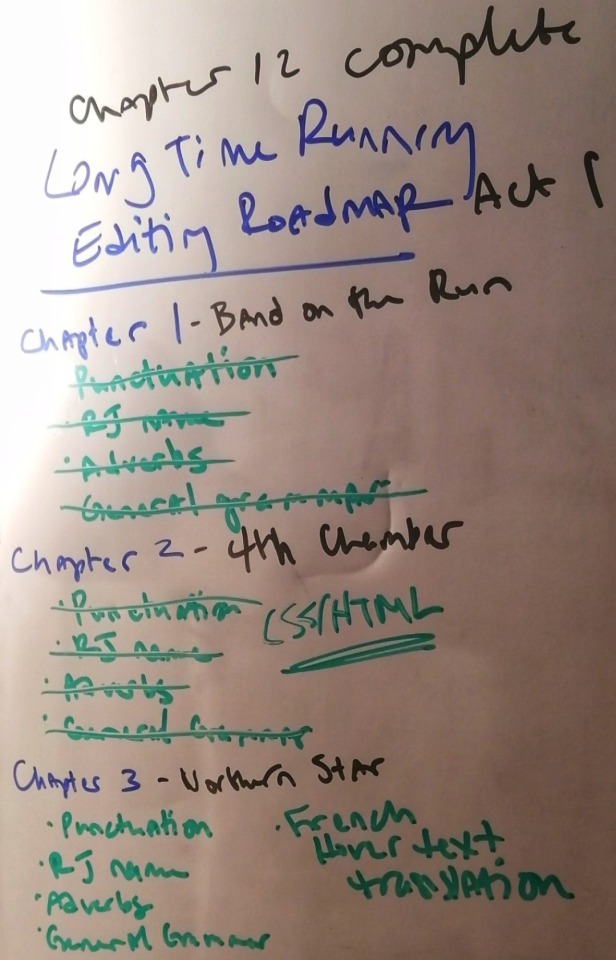 Chapter 12 complete
Long Time Running
Editing Roadmap Act 1
Chapter 1 - Band on the Run
Punctuation
· RJ name
· Adverbs
General grammar
Chapter 2 - 4th Chamber
· Punctuation
CSS/HTML
· RJ name
· Adverbs
· General Grammar
Chapter 3 - Northern Star
· Punctuation
· RJ name
· Adverbs
· General Grammar
· French
Hover text
translation